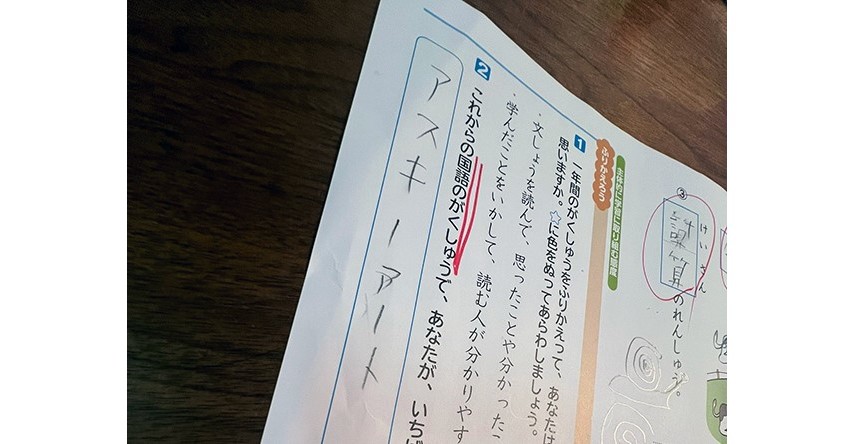 けいさん
③ 計算のれんしゅう。
主体的に学習に取り組む態度
ふりかえろう
1 一年間のがくしゅうをふりかえって、あなたは
思いますか。☆に色をぬってあらわしましょう。
・文しょうを読んで、思ったことや分かったこ
・学んだことをいかして、読む人が分かりやす
2 これからの国語のがくしゅうで、あなたが、いち
アスキーアート